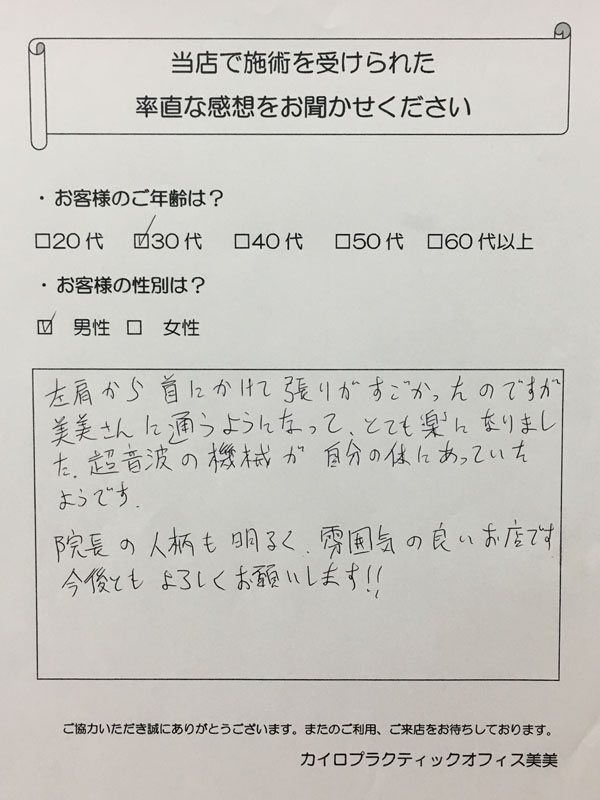 当店で施術を受けられた
率直な感想をお聞かせください
・お客様のご年齢は？
□20代 ☑30代 □40代 □50代 □60代以上
・お客様の性別は？
☑ 男性 □ 女性
左肩から首にかけて張りがすごかったのですが
美美さんに通うようになって、とても楽になりまし
た。超音波の機械が自分の体にあっていた
ようです。
院長の人柄も明るく、雰囲気の良いお店です
今後ともよろしくお願いします!!
ご協力いただき誠にありがとうございます。またのご利用、ご来店をお待ちしております。
カイロプラクティックオフィス美美